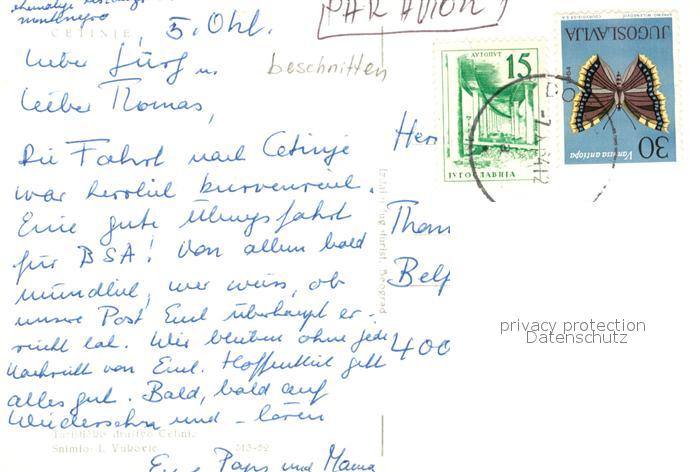 ehemalige
montenegro
CETINJE
PAR AVION
5. Okt.
Lieber Jürg u.
beschnitten
Lieber Thomas,
Die Fahrt nach Cetinje
war herrlich kurvenreich.
Eine gute Übungsfahrt
für BSA! Von allem bald
mündlich, wer weiss, ob
unsere Post Euch überhaupt er-
reicht hat. Wir bleiben ohne jede
Nachricht von Euch. Hoffentlich geht
alles gut. Bald, bald auf
Wiedersehn und - hören
Eure Paps und Mama
Turističko društvo Cetinj
Snimio: L. Vukovic 313-52
Beograd
Herr
Thom
Belf
400
АУТОПУТ
15
ЈУГОСЛАВИЈА
JUGOSLAVIJA
1964
Vanessa antiopa
30
privacy protection
Datenschutz